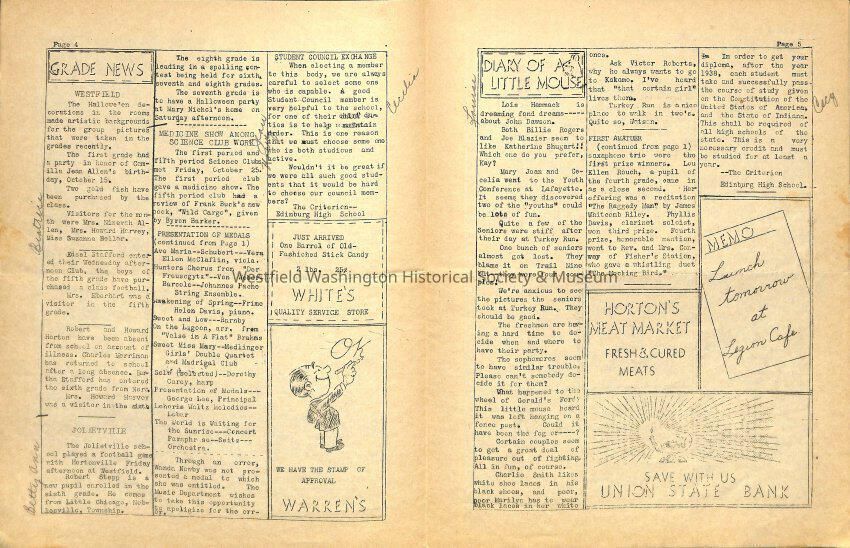 Page 4
GRADE NEWS
WESTFIELD
The Hallowe'en de-
corations in the rooms
made artistic backgrounds
for the group pictures
that were taken in the
grades recently.
The first grade had
a party in honor of Cam-
ille Jean Allen's birth-
day, October 15.
Two gold fish have
been purchased by the
class.
Visitors for the mon-
th were Mrs. Nixerth Al-
len, Mrs. Howard Harvey,
Miss Suzanne Beller.
Hazel Stafford enter
ed their Wednesday after-
noon Club, the boys of
the fifth grade have pur-
chased a class football.
Mrs. Eberhart was a
visitor in the fifth
grade.
Robert and Howard
Horton have been absent
from school on account of
illness. Charles Merriman
has returned to school
after a long absence. Ber-
tha Stafford has entered
the sixth grade from Nora.
Mrs. Howard Harvey
was a visitor in the sixth
JOLIETVILLE
The Jolietville sch-
ool played a football game
with Hortonville Friday
afternoon at Westfield.
Robert Stepp is a
new pupil enrolled in the
sixth grade. He comes
from Little Chicago, Nob-
lesville, Township.
Betty Ann
The eighth grade is
leading in a spelling con-
test being held for sixth,
seventh and eighth grades.
The seventh grade is
to have a Halloween party
at Mary Michel's home on
Saturday afternoon.
MEDICINE SHOW AMONG
SCIENCE CLUB WORK
The first period and
fifth period Science Club
met Friday, October 25.
The first period club
gave a medicine show. The
fifth period club had a
review of Frank Buck's new
book, "Wild Cargo", given
by Byron Barker.
PRESENTATION OF MEDALS
(continued from Page 1)
Ave Maria--Schubert--Vera
Ellen McClanahan, violin
Hunters Chorus from "Der
Freugsytz"--Von Weber
Barcole--Johannes Pache
String Ensemble.
Awakening of Spring--Prime
Helen Davis, piano.
Sweet and Low--Barnby
On the Lagoon, arr. from
"Valse in A Flat" Brahms
Sweet Miss Mary--Nedlinger
Girls' Double Quartet
and Madrigal Club
Solo (selected)--Dorothy
Carey, harp
Presentation of Medals---
George Lee, Principal
Leheris Waltz Melodies--
Lehar
The World is Waiting for
the Sunrise---Concert
Paraphrase--Seitz---
Orchestra.
Through an error,
Wanda Newby was not pre-
sented a medal to which
she was entitled. The
Music Department wishes
to take this opportunity
to apologize for the err-
STUDENT COUNCIL EXCHANGE
When electing a member
to this body, we are always
careful to select some one
who is capable. A good
Student Council member is
very helpful to the school,
for one of their chief du-
ties is to help maintain
order. This is one reason
that we must choose some one
who is both studious and
active.
Wouldn't it be great if
we were all such good stud-
ents that it would be hard
to choose our council mem-
bers?
The Criterion--
Edinburg High School
Cecelia
JUST ARRIVED
One Barrel of Old-
Fashioned Stick Candy
2 lbs. 25¢
WHITE'S
QUALITY SERVICE STORE
OK
WE HAVE THE STAMP OF
APPROVAL
WARREN'S
Westfield Washington Historical Society & Museum
Page 5
DIARY OF A
LITTLE MOUSE
Lois Hammack is
dreaming fond dreams--
about John Dawson.
Both Billie Rogers
and Joe Blazier seem to
like Katherine Shugart!!
Which one do you prefer,
Kay?
Mary Joan and Ce-
celia went to the Youth
Conference at Lafayette.
It seems they discovered
two of the "youths" could
be lots of fun.
Quite a few of the
Seniors were stiff after
their day at Turkey Run.
One bunch of seniors
almost got lost. They
blame it on Trail Nine
We're anxious to see
the pictures the seniors
took at Turkey Run. They
should be good.
The freshmen are hav-
ing a hard time to de-
cide when and where to
have their party.
The sophomores seem
to have similar trouble.
Please can't somebody de-
cide it for them?
What happened to the
wheel of Gerald's Ford?
This little mouse heard
it was left hanging on a
fence post. Could it
have been the fog or---?
Certain couples seem
to get a great deal of
pleasure out of fighting.
All in fun, of course.
Charlie Smith likes
white shoe laces in his
black shoes, and poor,
poor Marilyn has to wear
black laces in her white
ones.
Ask Victor Roberts,
why he always wants to go
to Kokomo. I've heard
that "that certain girl"
lives there.
Turkey Run is a nice
place to walk in two's.
Quite so, Watson.
FIRST AMATEUR
(continued from page 1)
saxophone trio were the
first prize winners. Lou
Ellen Rouch, a pupil of
the fourth grade, came in
as a close second. Her
offering was a recitation
"The Raggedy Man" by James
Whitcomb Riley. Phyllis
Davis, clarinet soloist,
won third prize. Fourth
prize, honorable mention,
went to Rev. and Mrs. Con-
way of Fisher's Station,
who gave a whistling duet
"The Mocking Bird."
In order to get your
diploma, after the year
1938, each student must
take and successfully pass
the course of study given
on the Constitution of the
United States of America,
and the State of Indiana.
This shall be required of
all high schools of the
state. This is a very
necessary credit and must
be studied for at least a
year.
--The Criterion
Edinburg High School.
MEMO
Lunch
tomorrow
at
Legion Cafe
HORTON'S
MEAT MARKET
FRESH & CURED
MEATS
SAVE WITH US
UNION STATE BANK